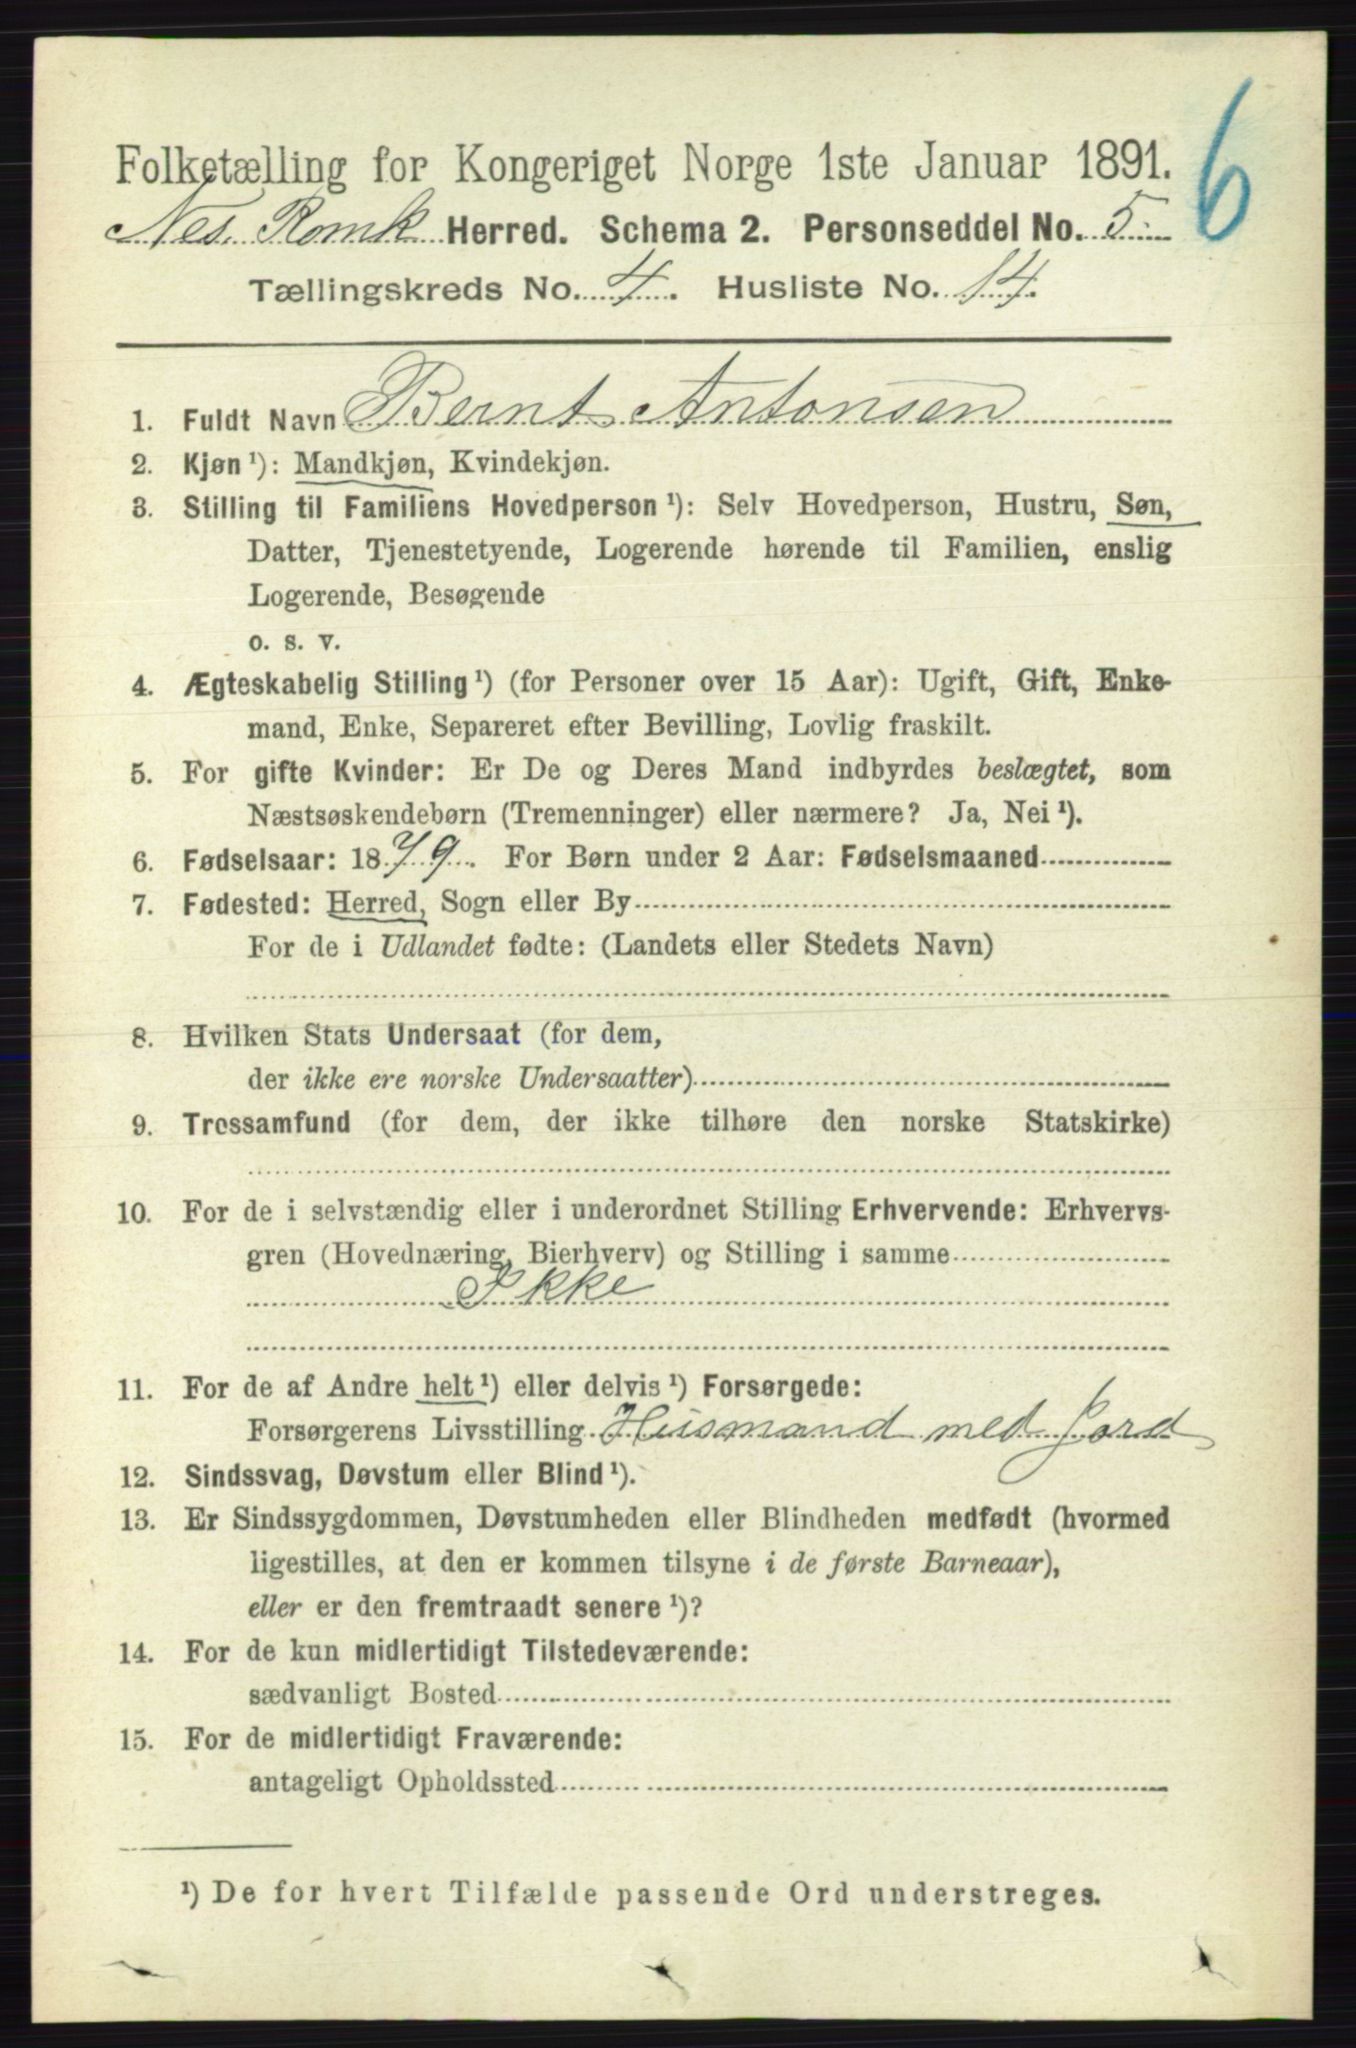 6
Folketælling for Kongeriget Norge 1ste Januar 1891.
Nes. Romk Herred. Schema 2. Personseddel No. 5.
Tællingskreds No. 4. Husliste No. 14.
1. Fuldt Navn Bernt Antonsen
2. Kjøn ¹): Mandkjøn, Kvindekjøn.
3. Stilling til Familiens Hovedperson ¹): Selv Hovedperson, Hustru, Søn,
Datter, Tjenestetyende, Logerende hørende til Familien, enslig
Logerende, Besøgende
o. s. v.
4. Ægteskabelig Stilling ¹) (for Personer over 15 Aar): Ugift, Gift, Enke-
mand, Enke, Separeret efter Bevilling, Lovlig fraskilt.
5. For gifte Kvinder: Er De og Deres Mand indbyrdes beslægtet, som
Næstsøskendebørn (Tremenninger) eller nærmere? Ja, Nei ¹).
6. Fødselsaar: 1879. For Børn under 2 Aar: Fødselsmaaned
7. Fødested: Herred, Sogn eller By
For de i Udlandet fødte: (Landets eller Stedets Navn)
8. Hvilken Stats Undersaat (for dem,
der ikke ere norske Undersaatter)
9. Trossamfund (for dem, der ikke tilhøre den norske Statskirke)
10. For de i selvstændig eller i underordnet Stilling Erhvervende: Erhvervs-
gren (Hovednæring, Bierhverv) og Stilling i samme
Ikke
11. For de af Andre helt ¹) eller delvis ¹) Forsørgede:
Forsørgerens Livsstilling Husmand med Jord
12. Sindssvag, Døvstum eller Blind ¹).
13. Er Sindssygdommen, Døvstumheden eller Blindheden medfødt (hvormed
ligestilles, at den er kommen tilsyne i de første Barneaar),
eller er den fremtraadt senere ¹)?
14. For de kun midlertidigt Tilstedeværende:
sædvanligt Bosted
15. For de midlertidigt Fraværende:
antageligt Opholdssted
¹) De for hvert Tilfælde passende Ord understreges.